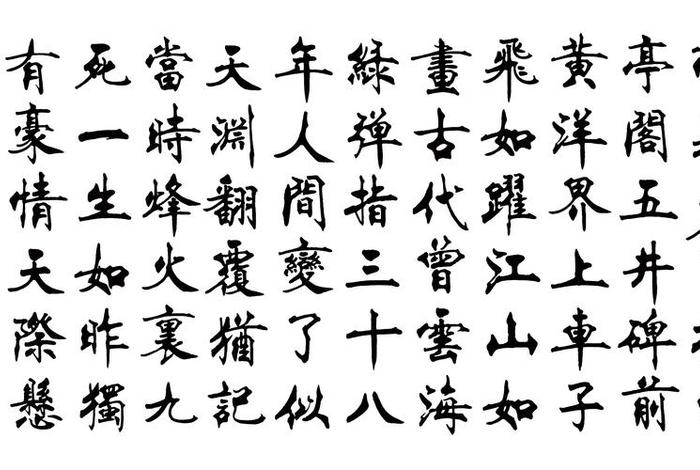 亭閣五井碑前
黃洋界上車子
飛如躍江山如
畫古代曾雲海
綠彈指三十八
年人間變了似
天淵翻覆猶記
當時烽火裏九
死一生如昨獨
有豪情天際懸